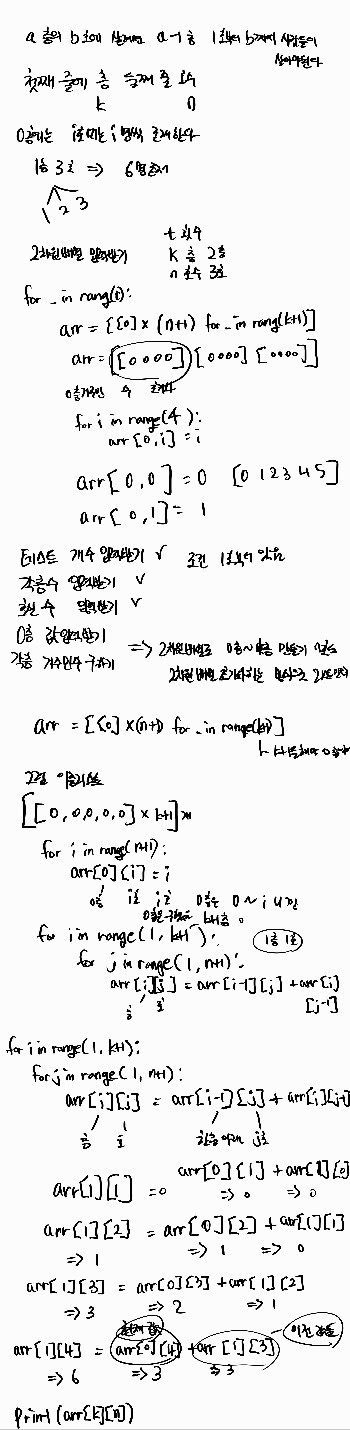 a 층의 b호에 살려면 a-1 층 1호부터 b호까지 사람들이
살아야된다
첫째 줄에 층 둘째 줄 호수
k n
0층에는 i호에는 i명씩 존재한다
1층 3호 => 6명
1 2 3
t 횟수
2차원배열 입력받기 k 층 2층
n 호수 3호
for _ in rang(t):
arr = [[0] x (n+1) for _ in rang(k+1)]
arr = [[0000] [0000] [0000]]
0층 수
for i in range(4):
arr[0,i] = i
arr[0,0] = 0 [0 1 2 3 4 5]
arr[0,1] = 1
테스트 개수 입력받기 ✓ 조건 1호부터 있음
각층수 입력받기 ✓
호실 수 입력받기 ✓
0층 값입력받기
각층 거주인수 구하기 => 2차원배열로 0층~ 만들기
2차원 배열 초기화하는
arr = [[0] x (n+1) for _ in range(k+1)]
[[0,0,0,0,0] x k+1]개
for i in range(n+1):
arr[0][i] = i
0층 i호 0층은 0~i
for i in range(1, k+1): 1층 1호
for j in range(1, n+1):
arr[i][j] = arr[i-1][j] + arr[i]
[j-1]
층 호
for i in range(1, k+1):
for j in range(1, n+1):
arr[i][j] = arr[i-1][j] + arr[i][j-1]
층 호 한층아래 j호
arr[0][1] + arr[1][0]
arr[1][1] =0 => 0 => 0
arr[1][2] = arr[0][2] + arr[1][1]
=> 1 => 1 => 0
arr[1][3] = arr[0][3] + arr[1][2]
=> 3 => 2 => 1
이전 값들
arr[1][4] = arr[0][4] + arr[1][3]
=> 6 => 3 => 3
print(arr[k][n])